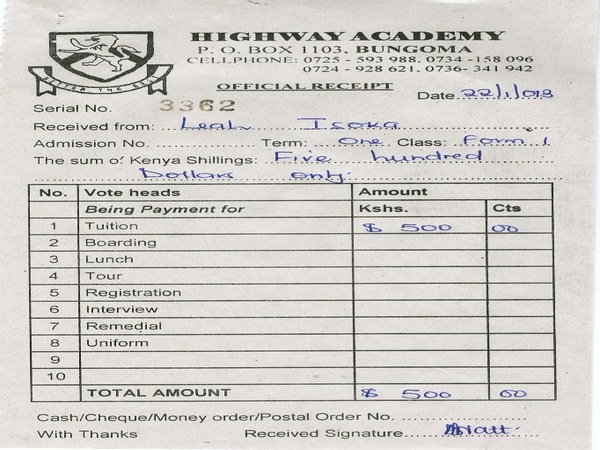 HIGHWAY ACADEMY
P. O. BOX 1103, BUNGOMA
CELLPHONE: 0725 - 593 988, 0734 -158 096
0724 - 928 621, 0736- 341 942
OFFICIAL RECEIPT
Date 22/1/013
Serial No. 3362
Received from: Leah Isoka
Admission No. Term: One Class: Form 1
The sum of Kenya Shillings: Five hundred
Dollars only.
No. Vote heads Amount
Being Payment for Kshs. Cts
1 Tuition $ 500 00
2 Boarding
3 Lunch
4 Tour
5 Registration
6 Interview
7 Remedial
8 Uniform
9
10
TOTAL AMOUNT $ 500 00
Cash/Cheque/Money order/Postal Order No.
With Thanks Received Signature